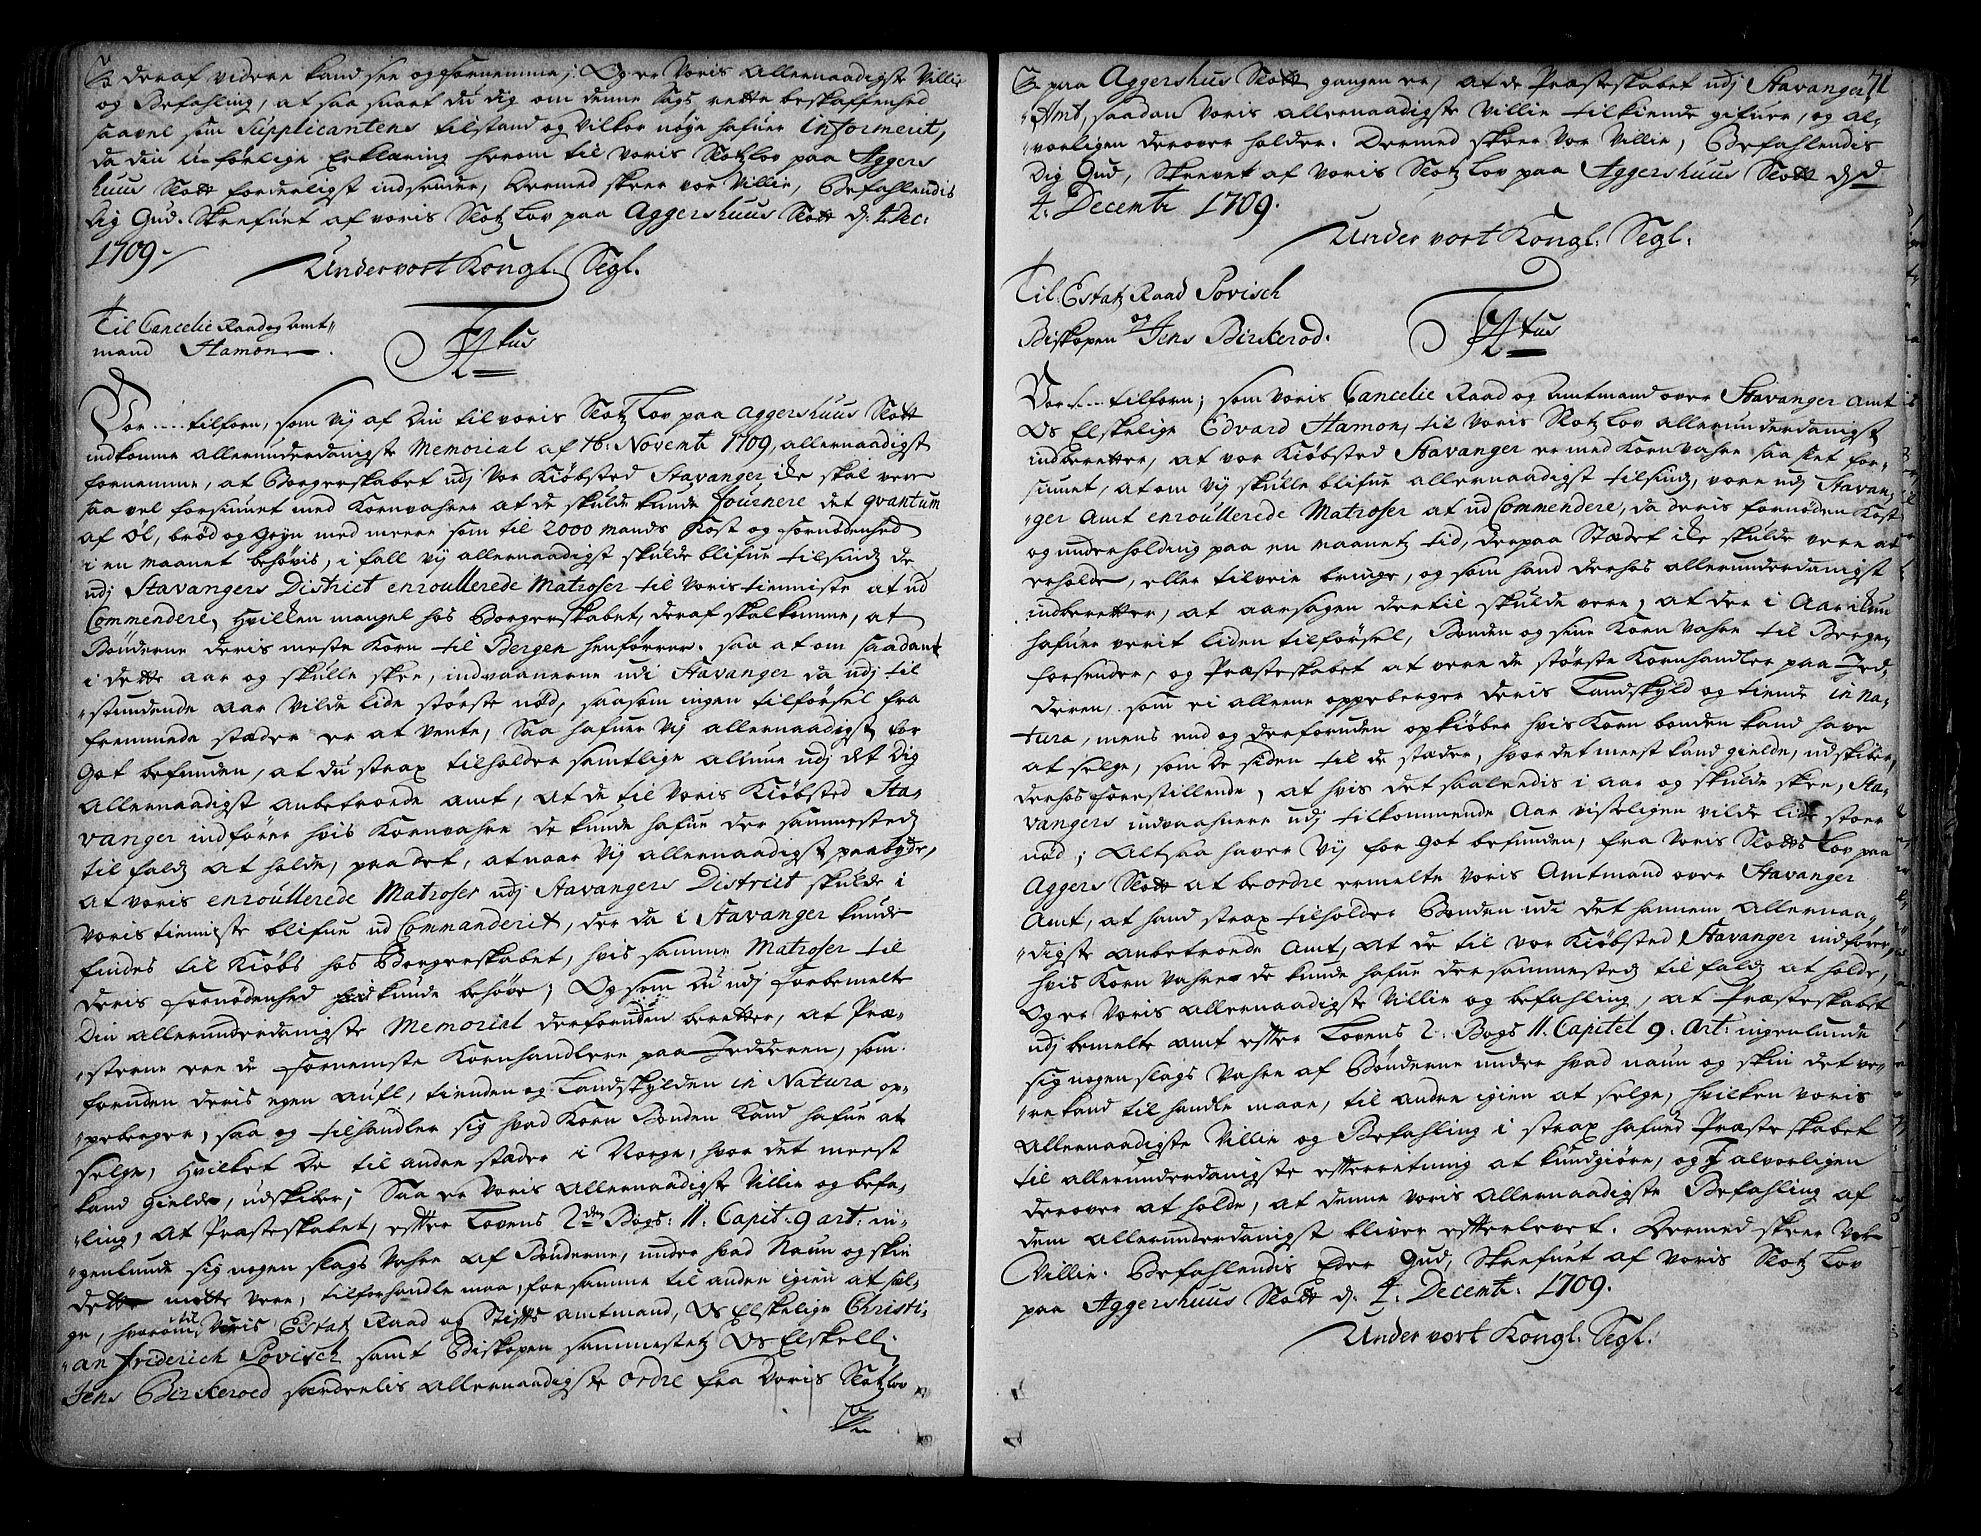 deraf videre kand see og fornemme; Og er Voris Allernaadigste Villie
og Befahling, at saa snart du dig om denne Sags rette beskaffenhed
saavel som Supplicantens tilstand og Vilkor nøye hafuer informerit,
da din uforlige Erklæring herom til Voris Slotz Lov paa Aggers
huus Slott forderligst indsender, Dermed skeer vor Villie, Befahlendis
Dig Gud. Skrefuet af voris Slotz Lov paa Aggershuus Slott d: 4. Dec:
1709.
Under vort Kongl. Segl.
Til Cancelie Raad og Amt-
mand Hamon.
F 4 tus
Vor .... tilforn, som vij af Din til voris Slotz Lov paa Aggershuus Slott
indkomne allerunderdanigste Memorial af 16. Novemb 1709, allernaadigst
fornemme, at Borgerskabet udj vor Kiøbsted Stavanger icke skal vere
saa vel forsiunet med Kornvahrer at de skulde kunde fournere det qvantum
af Øl, brød og Gryn med mere som til 2000 mands Kost og fornødenhed
i en maanet behøvis, i fall vij allernaadigst skulde blifue tilsindz de
udj Stavangers District enroullerede Matroser til voris tienniste at ud
Commendere, Hvilken mangel hos Borgerskabet, deraf skal komme, at
Bønderne deris meste Korn til Bergen henfører. saa at om saadant
i dette aar og skulle skee, indvaanerne udi Stavanger da udj til
-stundende aar Vilde lide største nød, saasom ingen tilførsel fra
fremmede stæder er at vente, Saa hafuer Vij allernaadigst for
Got befunden, at du strax tilholder samtlige almue udj det dig
allernaadigst anbetroede amt, at de til Voris Kiøbsted Sta-
vanger indfører hvis Kornvahre de kunde hafue der sammesteds
til falds at holde, paa det, at naar Vij allernaadigst paabyde,
at voris enroullerede Matroser udj Stavangers District skulde i
Voris tienniste blifue ud Commanderit, der da i Stavanger kunde
findes til Kiøbs hos Borgerskabet, hvis samme Matroser til
deris fornødenhed kunde behøve; Og som Du udj forbemelte
Din allerunderdanigste Memorial derforuden beretter, at Præ-
-sterne ere de fornemste Kornhandlere paa Jedderen, som
foruden deris egen aufl, tienden og Landskylden in Natura op-
-peberger, saa og tilhandler sig hvad Korn Bonden Kand hafue at
selge, Hvilket De til andre stæder i Norge, hvor det meest
kand gielde, udskiber; Saa er Voris Allernaadigste Villie og befa-
-ling, at Præsteskabet, efter Lovens 2den Bogs: 11. Capit. 9 art: in-
-genlunde sig nogen slags Vahre af Bønderne, under hvad Naun og skin
dette motte vere, tilforhandle maa, for samme til andre igien at sæl-
ge, hvorom til Voris Estatz Raad og Stifts amtmand, Os Elskelige Christi-
-an Friderich Povisch samt Biskopen sammestetz Os Elskelig
Jens Birkeroed særdeelis allernaadigste ordre fra Voris Slotz Lov
71
paa Aggershuus Slott gangen er, at de Præsteskabet udj Stavanger
Amt, saadan Voris allernaadigste Villie tilkiende gifuer, og al-
-vorligen derover holder. Dermed skeer Vor Villie, Befahlendis
Dig Gud, Skrevet af Voris Slotz Lov paa Aggershuus Slott d
4. Decemb 1709.
Under vort Kongl: Segl.
Til Estatz Raad Povisch
og
Biskopen Jens Birkerod.
F 4 tus
Vor .... tilforn; som Voris Cancelie Raad og Amtmand over Stavanger Amt
Os Elskelige Edvard Hamon, til Voris Slotz Lov allerunderdanigst
indberetter, at vor Kiøbsted Stavanger er med Kornvahre saa slet for-
siunet, at om vij skulle blifue allernaadigst tilsindz, vore udj Stavan-
-ger Amt enroullerede Matroser at ud Commendere, da deris fornøden Kost
og underholding paa en maanetz tid, der paa Stædet icke skulde vere at
erholde, eller tilveie bringe, og som hand derhos allerunderdanigst
indberetter, at aarsagen dertil skulde vere, at der i Aar ickun
hafuer verit liden tilførsel, Bonden og sine Korn Vahre til Bergen
forsender, og Præsteskabet at vere de største Kornhandler paa Jed-
deren, som ei alleene oppeberger deris Landskyld og tiende in na-
tura, mens end og derforuden opkiøber hvis Korn bonden kand have
at selge, som de siden til de stæder, hvor det meest kand gielde, udskiber,
derhos forestillende, at hvis det saaleedis i aar og skulde skee, Sta-
vangers indvaahnere udj tilkommende Aar visseligen vilde lide stoer
nød; Altsaa haver Vij for Got befunden, fra Voris Slotts Lov paa
Aggers Slott at beordre ermelte Voris Amtmand over Stavanger
Amt, at hand strax tilholder Bonden udi det hannem allernaa-
-digste anbetroede Amt, at de til vor Kiøbsted Stavanger indfører,
hvis Korn Vahre de kunde hafue der sammesteds til falds at holde,
Og er Voris allernaadigste Villie og befahling, at Præsteskabet
udj bemelte amt efter Lovens 2. Bogs 11. Capitel 9. Art: ingenlunde
sig nogen slags Vahre af Bønderne under hvad naun og skin det ve-
-re kand til handle maae, til andre igien at selge, Hvilken voris
Allernaadigste Villie og Befahling i strax hafued Præsteskabet
til allerunderdanigste efterretning at kundgiøre, og I alvorligen
derover at holde, at denne voris allernaadigste Befahling af
dem allerunderdanigst bliver efterlevet. Dermed skeer Vor
Villie. Befahlendis Eder Gud, Skrefuet af Voris Slotz Lov
paa Aggershuus Slott d. 4. Decemb. 1709.
Under vort Kongl: Segl.